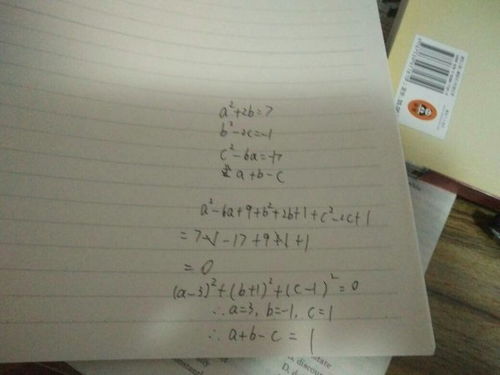 a²+2b=7
b²-2c=-1
c²-6a=-17
求a+b-c
a²-6a+9+b²+2b+1+c²-2c+1
=7-1-17+9+1+1
=0
(a-3)²+(b+1)²+(c-1)²=0
∴a=3, b=-1, c=1
∴a+b-c=1